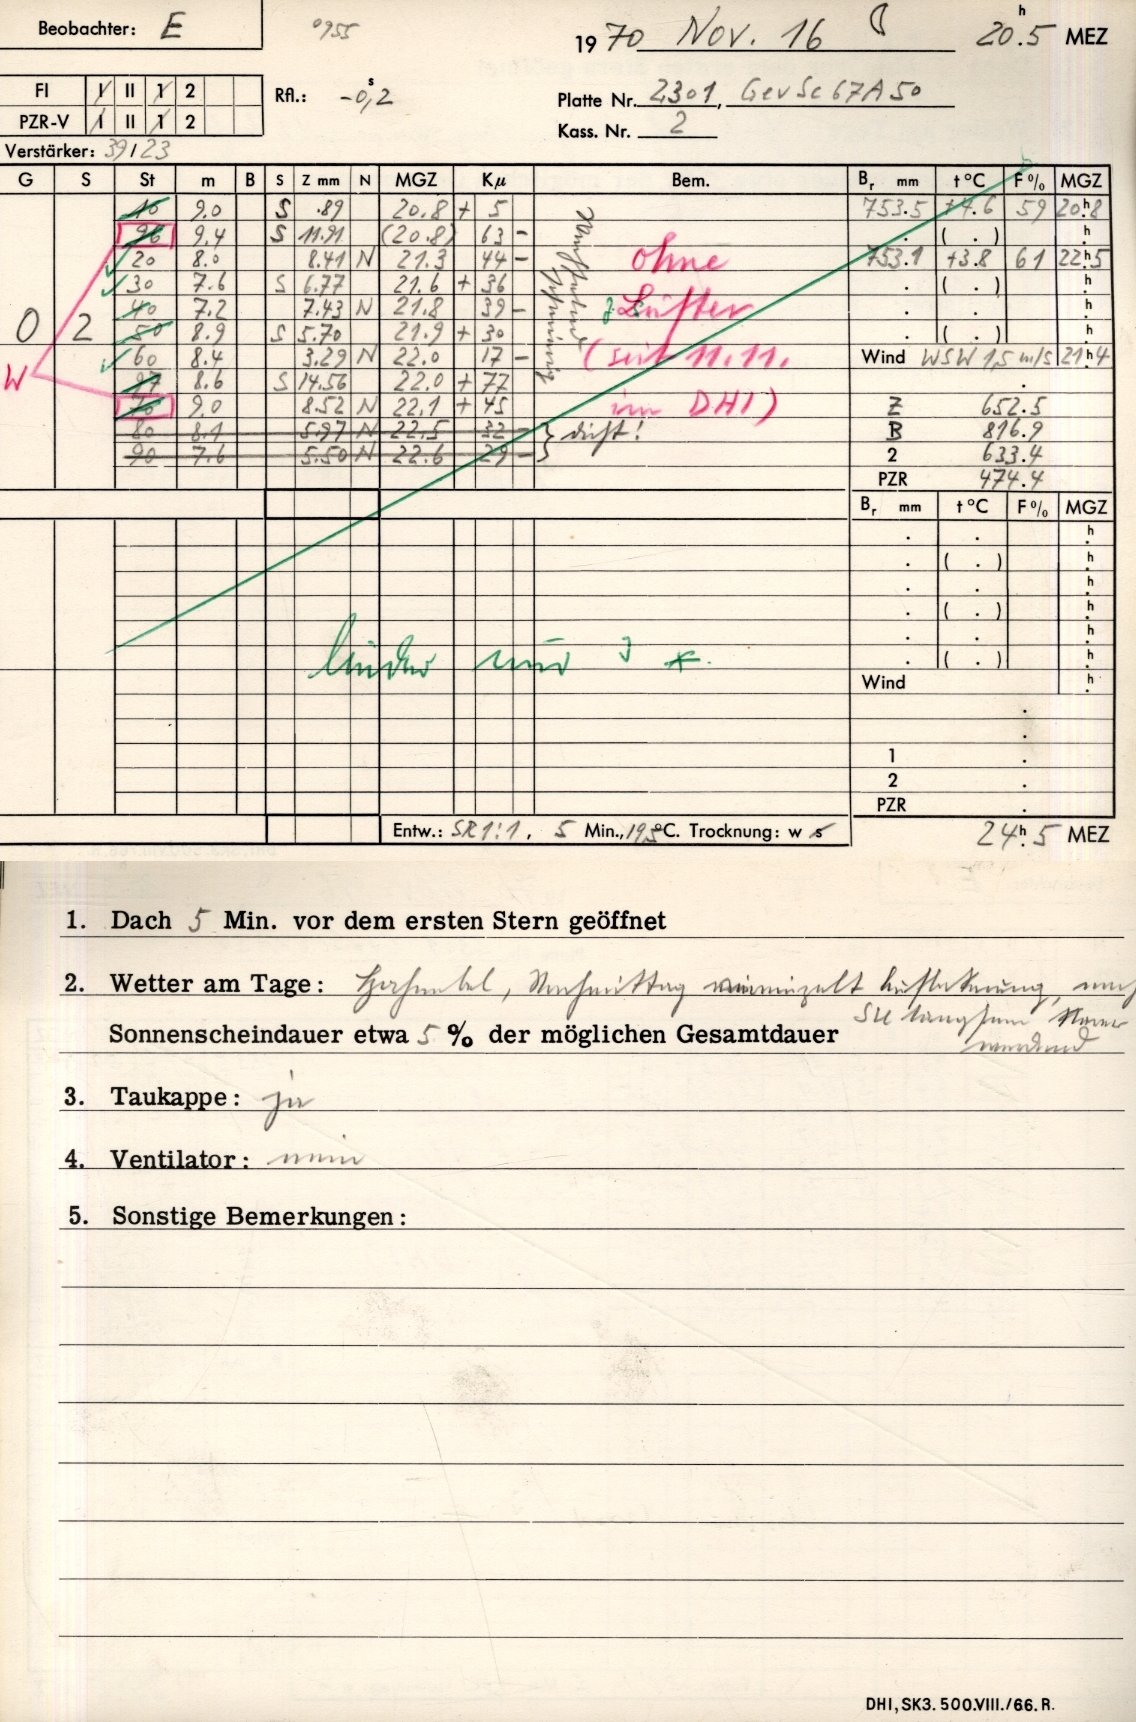 Beobachter: E
0955
1970 Nov. 16
20.5 h MEZ
FI I II 1 2
PZR-V I II 1 2
Rfl.: -0,2 s
Platte Nr. 2301, Gev Sc 67A50
Kass. Nr. 2
Verstärker: 39/23
G S St m B S Z mm N MGZ Kμ Bem. Br mm t°C F% MGZ
10 9.0 S .89 20.8 + 5 753.5 +4.6 59 20h8
96 9.4 S 11.91 (20.8) 63 - ohne
20 8.0 8.41 N 21.3 44 - 753.1 +3.8 61 22h5
30 7.6 S 6.77 21.6 + 36
40 7.2 7.43 N 21.8 39 - Lüfter
O 2 50 8.9 S 5.70 21.9 + 30
60 8.4 3.29 N 22.0 17 - (seit 11.11. Wind WSW 1,5 m/s 21h4
W 97 8.6 S 14.56 22.0 + 77
70 9.0 8.52 N 22.1 + 45 im DHI) Z 652.5
80 8.1 5.97 N 22.5 32 - } dicht! B 816.9
90 7.6 5.50 N 22.6 29 - 2 633.4
PZR 474.4
Br mm t°C F% MGZ
leider nur 3 *
Wind
1
2
PZR
Entw.: SR 1:1, 5 Min., 19,5°C. Trocknung: w s
24h.5 MEZ
1. Dach 5 Min. vor dem ersten Stern geöffnet
2. Wetter am Tage: Hochnebel, Nachmittag vereinzelt Auflockerung, nach
SU langsam klarer
werdend
Sonnenscheindauer etwa 5 % der möglichen Gesamtdauer
3. Taukappe: ja
4. Ventilator: nein
5. Sonstige Bemerkungen:
DHI, SK3. 500.VIII./66. R.